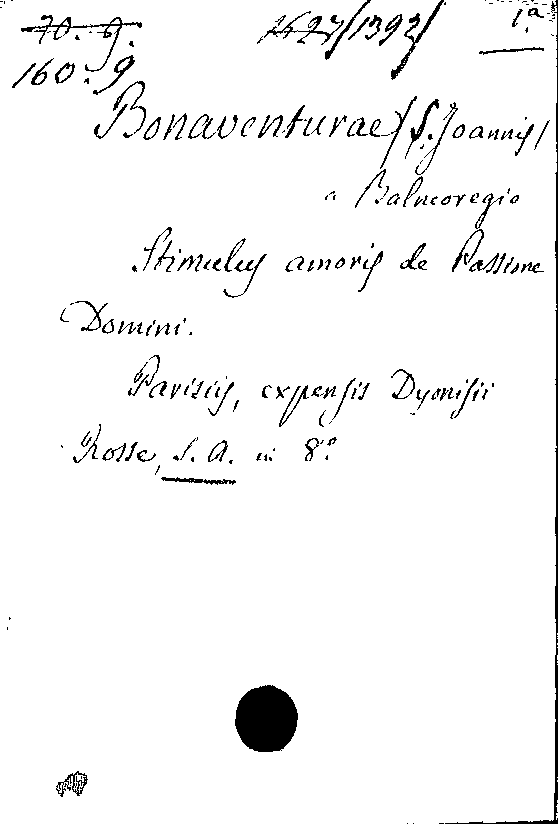 70. 9. 1627/1392/ 1.a
160. 9
Bonaventurae (S. Joannis)
a Balneoregio
Stimulus amoris de Passione
Domini.
Parisiis, expensis Dyonisii
Rosse, S. A. in 8.o